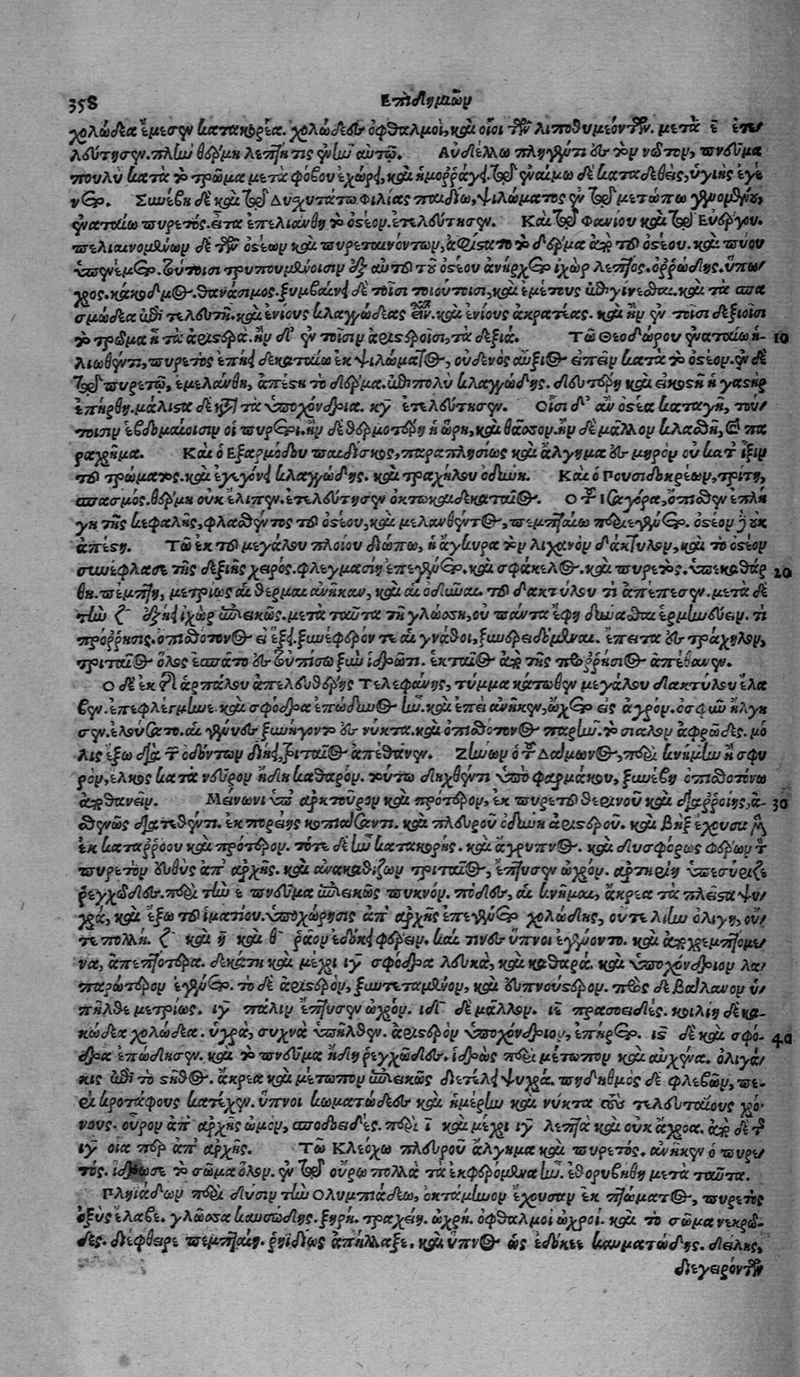 358 Ἐπιδημιῶν
χολώδεα ἔμεσεν κατακορέα. χολώδεες ὀφθαλμοὶ, καὶ οἷοι τῶν λιποθυμεόντων. μετὰ ε ἐτε-
λεύτησεν. πλὴν θέρμη λεπτή τις ἐνῆν αὐτῷ. Αὐδέλλω πληγέντι ἐς τὸν νῶτον, πνεῦμα
πουλὺ κατὰ τὸ τρῶμα μετὰ ψόφου ἐχώρει, καὶ ἡμορράγει. τῷ ἐναίμῳ δὲ καταδεθεὶς, ὑγιὴς ἐγέ
νετο. Συνέβη δὲ καὶ τῷ Δυχυτάτω Φιλίας παιδίῳ, ψιλώματος ἐν τῷ μετώπῳ γενομένου,
ἐναταίῳ πυρετός. εἶτα ἐπελιάνθη τὸ ὀστέον. ἐτελεύτησεν. Καὶ τῷ Φανίου καὶ τῷ Εὐέργου.
πελιαινομένων δὲ τῶν ὀστέων καὶ πυρεταινόντων, ἀφίσταται τὸ δέρμα ἀπὸ τοῦ ὀστέου. καὶ πύον
ὑπογίνεται. τούτοισι τρυπουμένοισιν ἐξ αὐτοῦ τοῦ ὀστέου ἀνήρχετο ἰχὼρ λεπτός. ὀρρώδης. ὕπω-
χρος. κάκοδμος. θανάσιμος. ξυμβαίνει δὲ τοῖσι τοιούτοισι, καὶ ἐμέτους ἐπιγίνεσθαι. καὶ τὰ σπα
σμώδεα ἐπὶ τελευτῇ. καὶ ἐνίους κλαγγώδεας εἶναι. καὶ ἐνίους ἀκρατέας. καὶ ἢν ἐν τοῖσι δεξιοῖσι
τὸ τρῶμα ᾖ τὰ ἀριστερά. ἢν δ' ἐν τοῖσιν ἀριστεροῖσι, τὰ δεξιά. Τῶ Θεοδώρου ἐναταίῳ ἡ- 10
λιωθέντι, πυρετὸς ἐπῆκε δεκαταίῳ ἐκ ψιλώματος, οὐδενὸς ἄξιος εἰπεῖν κατὰ τὸ ὀστέον. ἐν δὲ
τῷ πυρετῷ, ἐμελάνθη, ἀπέστη τὸ δέρμα. ἐπὶ πολὺ κλαγγώδης. δευτέρῃ καὶ εἰκοστῇ ἡ γαστὴρ
ἐπήρθη. μάλιστα δὲ κατὰ τὰ ὑποχόνδρια. κγ ἐτελεύτησεν. Οἷσι δ' ἂν ὀστέα καταγῇ, τού-
τοισιν ἑβδομαίοισιν οἱ πυρετοί. ἢν δὲ θερμοτέρη ἡ ὥρη, καὶ θᾶσσον. ἢν δὲ μᾶλλον κλασθῇ, καὶ πα
ραχρῆμα. Καὶ ὁ Ἐξαρμόδου παιδίσκος, παραπλησίως καὶ ἄλγημα ἐς μηρὸν οὐ κατ' ἴξιν
τοῦ τρώματος. καὶ ἐγίγνετο κλαγγώδης. καὶ τραχήλου ὀδύνη. Καὶ ὁ Ποσιδοκρέων, τρίτῃ,
σπασμός. θέρμη οὐκ ἔλιπεν. ἐτελεύτησεν ὀκτωκαιδεκαταῖος. Ὁ τοῦ Ἰσαγόρα, ὄπισθεν ἐπλή
γη τῆς κεφαλῆς, φλασθέντος τοῦ ὀστέου, καὶ μελανθέντος, πεμπταίῳ περιεγένετο. ὀστέον δὲ οὐκ
ἀπέστη. Τῶ ἐκ τοῦ μεγάλου πλοίου διόπῳ, ἡ ἄγκυρα τὸν λιχανὸν δάκτυλον, καὶ τὸ ὀστέον
συνέφλασε τῆς δεξιῆς χειρός. φλεγμασίη ἐπεγένετο. καὶ σφάκελος. καὶ πυρετός. ὑπεκαθάρ 20
θη. πέμπτῃ, μετρίως αἱ θέρμαι ἀνῆκαν, καὶ αἱ ὀδύναι. τοῦ δακτύλου τὶ ἀπέπεσεν. μετὰ δὲ
τὴν ζ ἐξῄει ἰχὼρ ἐπιεικῶς. μετὰ ταῦτα τῇ γλώσσῃ, οὐ πάντα ἔφη δύνασθαι ἑρμηνεύειν. τὶ
πρόρρησις. ὀπισθότονος εἰ ἥξει. ξυνέφερόν τε αἱ γνάθοι, ξυνερειδόμεναι. ἔπειτα ἐς τράχηλον,
τριταῖος ὅλος ἐσπᾶτο ἐς τοὐπίσω ξὺν ἱδρῶτι. ἑκταῖος ἀπὸ τῆς προρρήσιος ἀπέθανεν.
Ὁ δὲ ἐκ τῆς ἁρπάλου ἀπελευθέρης Τελεφάνης, τύμμα κάτωθεν μεγάλου δακτύλου ἔλα
βεν. ἐπεφλέγμηνε. καὶ σφόδρα ἐπώδυνος ἦν. καὶ ἐπεὶ ἀνῆκεν, ᾤχετο εἰς ἀγρόν. ὀσφὺν ἤλγη
σεν. ἐλούσατο. αἱ γένυες ξυνήγοντο ἐς νύκτα. καὶ ὀπισθότονος παρῆν. τὸ σίαλον ἀφρῶδες. μό
λις ἔξω διὰ τῶν ὀδόντων διῄει, τριταῖος ἀπέθανεν. Ζήνων ὁ τοῦ Δάμωνος, περὶ κνήμην ἢ σφυ
ρὸν, ἕλκος κατὰ νεῦρον ἤδη καθαρόν. τούτῳ δηχθέντι ὑπὸ φαρμάκου, ξυνέβη ὀπισθοτόνῳ
ἀποθανεῖν. Μένωνι ὑπ' ἀρκτοῦρον καὶ πρότερον, ἐκ πυρετοῦ θερινοῦ καὶ διαρροίης, ἀ- 30
σθενῶς διατεθέντι. ἐκ πορείης κοπιάσαντι. καὶ πλευροῦ ὀδύνη ἀριστεροῦ. καὶ βὴξ ἔχουσα μὲν
ἐκ καταρρόου καὶ πρότερον. τότε δὲ ἦν κατακορής. καὶ ἄγρυπνος. καὶ δυσφόρως φέρων τὸν
πυρετὸν εὐθὺς ἀπ' ἀρχῆς. καὶ ἀνακαθίζων τριταῖος, ἔπτυσεν ὠχρόν. ἀρτηρίη ὑπεσύριζε
ῥεγχῶδες. περὶ τὴν ε πνεῦμα ἐπιεικῶς πυκνόν. πόδες, αἱ κνῆμαι, ἄκρεα τὰ πλεῖστα ψυ-
χρὰ, καὶ ἔξω τοῦ ἱματίου. ὑποχώρησις ἀπ' ἀρχῆς ἐπεγένετο χολώδης, οὔτε λίην ὀλίγη, οὔ-
τε πολλή. ζ καὶ η καὶ θ ῥᾷον ἐδόκει φέρειν. καί τινες ὕπνοι ἐγένοντο. καὶ ἀποχρεμπτόμε-
να, ἀπεπτότερα. δεκάτῃ καὶ μέχρι ιγ σφόδρα λευκὰ, καὶ καθαρά. καὶ ὑποχόνδριον λα-
παρώτερον ἐγένετο. τὸ δὲ ἀριστερὸν, ξυντεταμένον, καὶ εὐπνούστερον. πρὸς δὲ βάλανον ὑ-
πῆλθε μετρίως. ιγ πάλιν ἔπτυσεν ὠχρόν. ιδ δὲ μᾶλλον. ιε πρασοειδές. κοιλίη δὲ κα-
κώδεα χολώδεα. ὑγρὰ, συχνὰ ὑπῆλθεν. ἀριστερὸν ὑποχόνδριον, ἐπήρετο. ις δὲ καὶ σφό- 40
δρα ἐπώδησεν. καὶ τὸ πνεῦμα ἤδη ῥεγχῶδες. ἱδρὼς περὶ μέτωπον καὶ αὐχένα. ὀλιγά-
κις ἐπὶ τὸ στῆθος. ἄκρεα καὶ μέτωπον ἐπιεικῶς διετέλει ψυχρά. πηδηθμὸς δὲ φλεβῶν, πε-
ρὶ κροτάφους κατεῖχεν. ὕπνοι κωματώδεες καὶ ἡμέρην καὶ νύκτα τοὺς τελευταίους χρό-
νους. οὖρον ἀπ' ἀρχῆς ὠμὸν, σποδοειδές. περὶ ι καὶ μέχρι ιγ λεπτὰ καὶ οὐκ ἄχροα. ἀπὸ δὲ τῆς
ιγ οἷα περ ἀπ' ἀρχῆς. Τῶ Κλεόχω πλευροῦ ἄλγημα καὶ πυρετός. ἀνῆκεν ὁ πυρε-
τός. ἵδρωσε τὸ σῶμα ὅλον. ἐν τῷ οὔρῳ πολλὰ τὰ ἐκφερόμενα ἦν. ἐθορυβήθη μετὰ ταῦτα.
Πληϊάδων περὶ δύσιν τὴν Ὀλυμπιάδεω, ὀκτάμηνον ἔχουσαν ἐκ πτώματος, πυρετὸς
ὀξὺς ἔλαβε. γλῶσσα καυσώδης. ξηρή. τραχείη. ὠχρή. ὀφθαλμοὶ ὠχροί. καὶ τὸ σῶμα νεκρῶ-
δες. διέφθειρε πεμπταίη. ῥηϊδίως ἀπήλλαξε. καὶ ὕπνος ὡς ἐδόκεε καυματώδης. δείλης,
διεγειρόντων